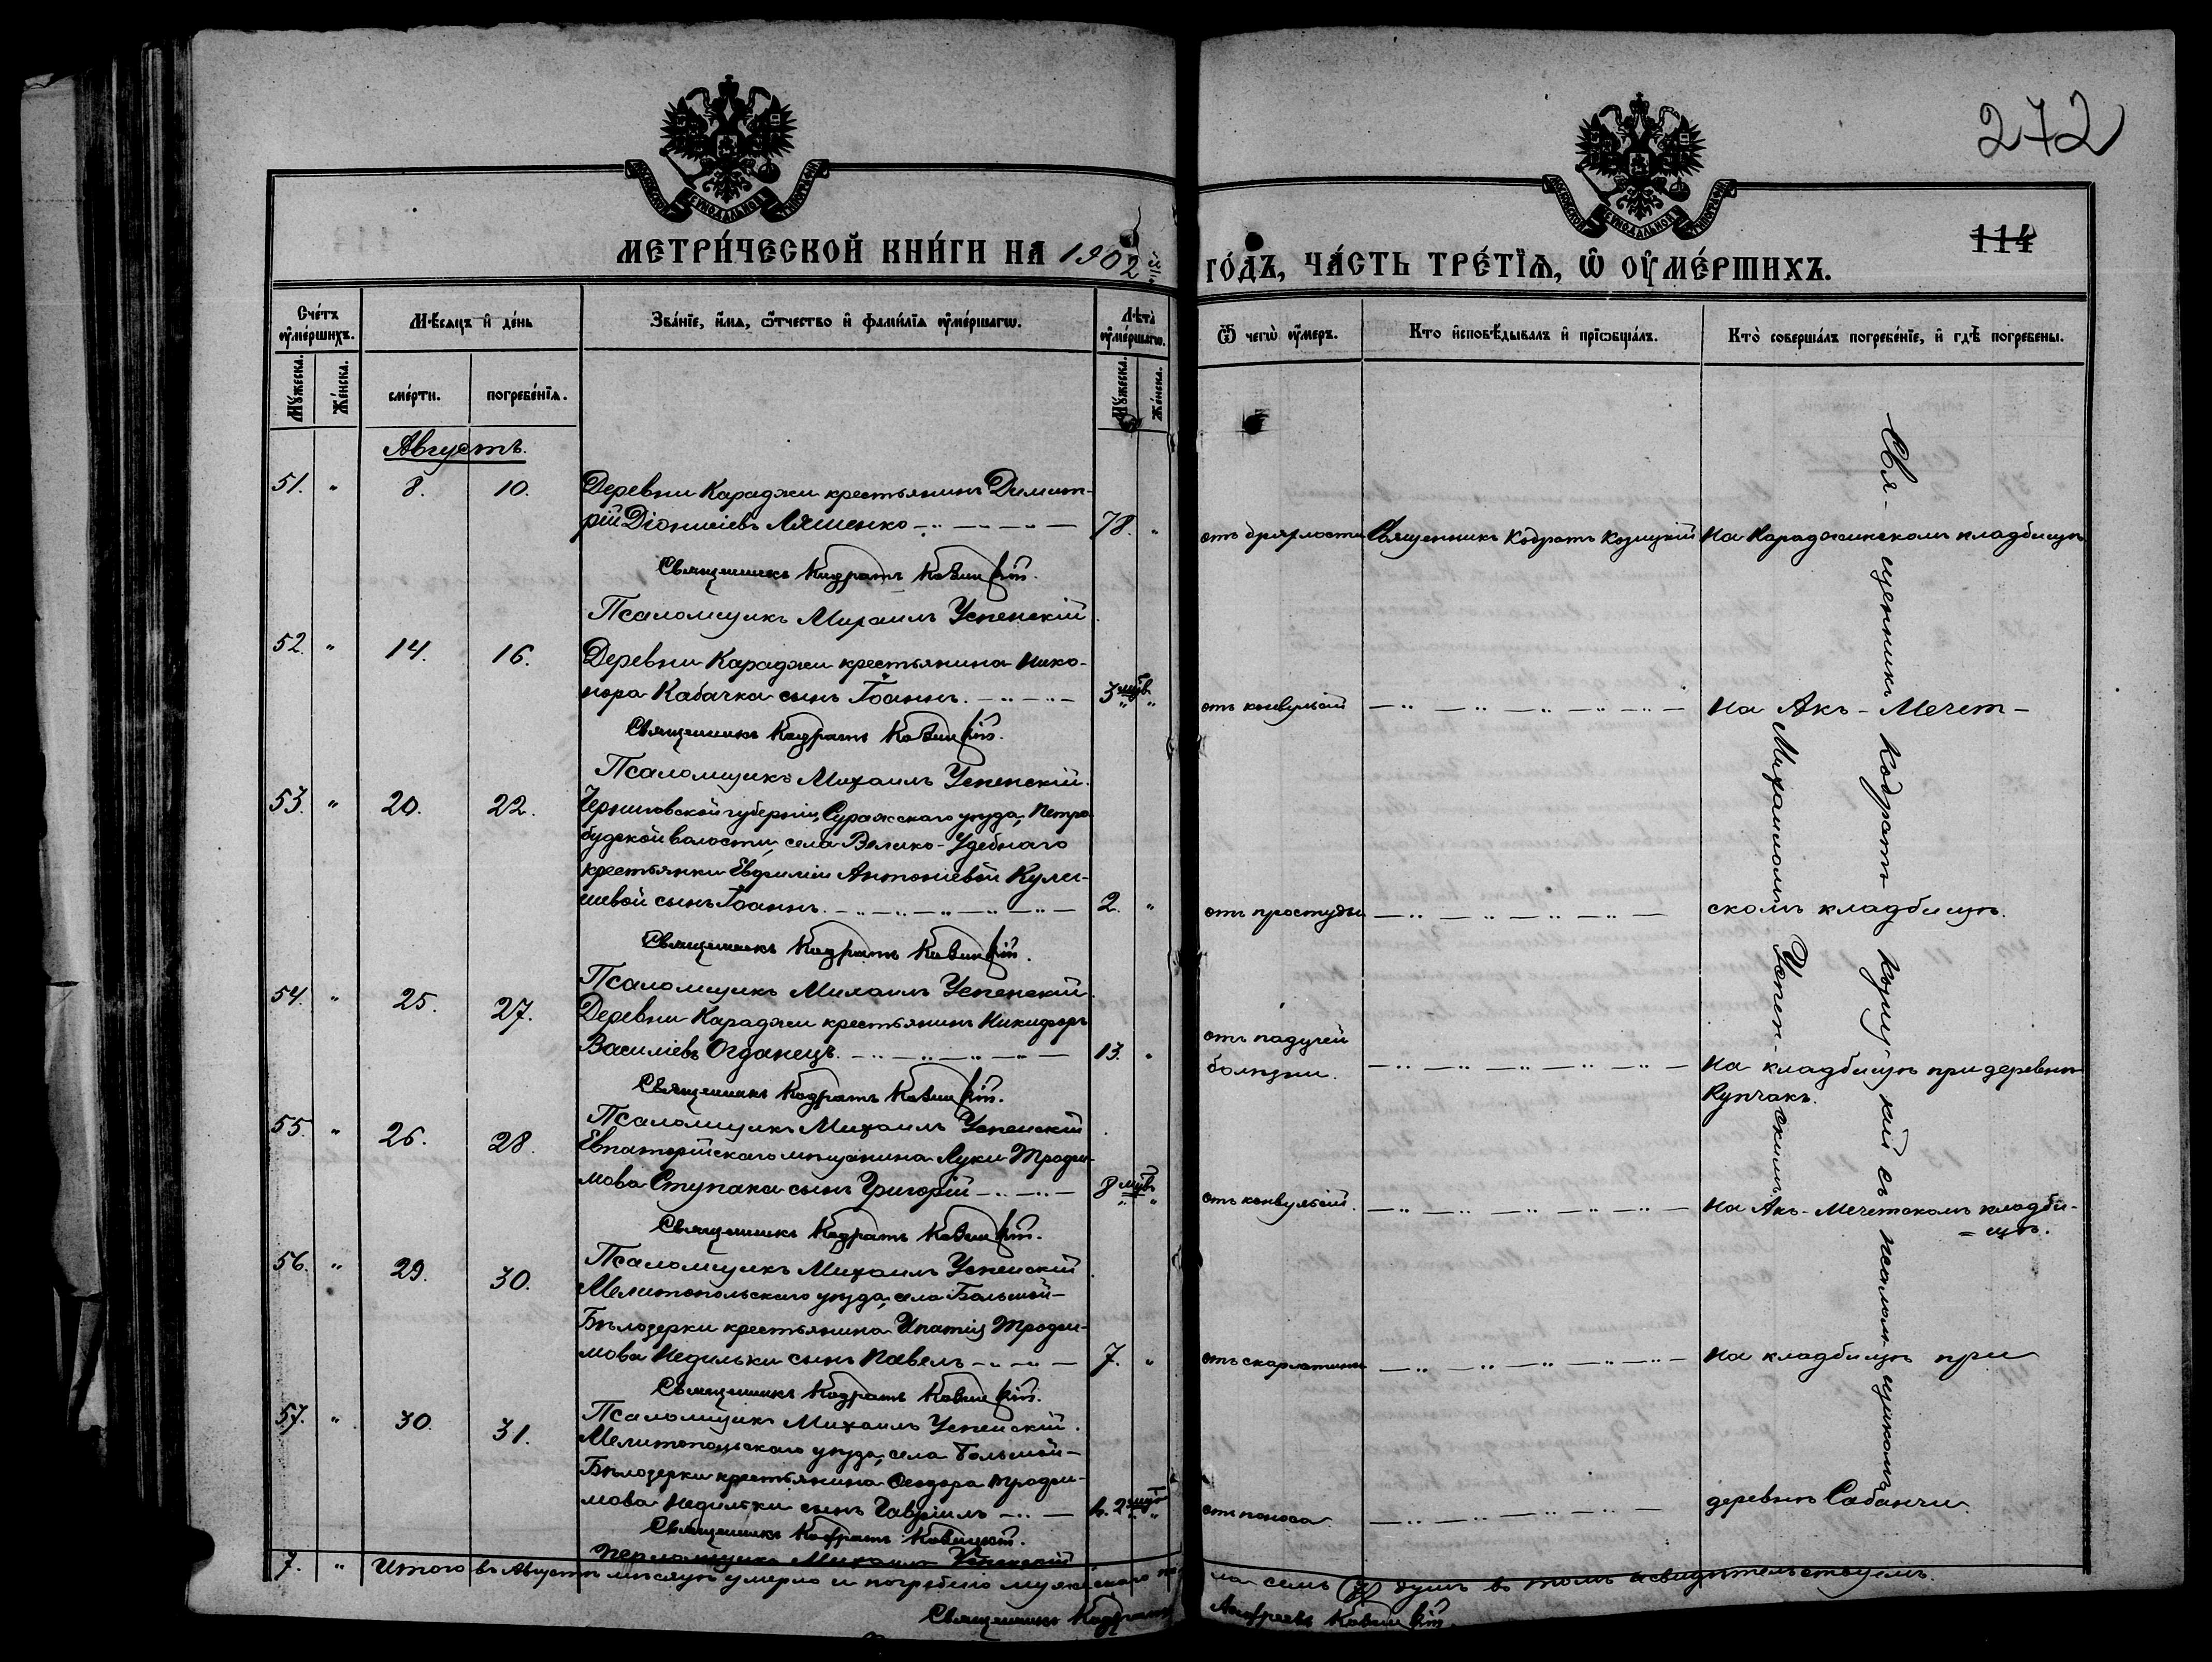 272
114
МОСКОВСКОЙ СѴНОДАЛЬНОЙ ТИПОГРАФІИ
МОСКОВСКОЙ СѴНОДАЛЬНОЙ ТИПОГРАФІИ
МЕТРИ́ЧЕСКОЙ КНИ́ГИ НА 1902 ГО́ДЪ, ЧА́СТЬ ТРЕ́ТЇѦ, Ѡ҆ ОУ҆МЕ́РШИХЪ.
Сче́тъ оу҆ме́ршихъ.
Мꙋ́жеска.
Же́нска.
Мѣ́сѧцъ и҆ де́нь
сме́рти.
погребе́нїѧ.
Зва́нїе, и҆́мѧ, ѻ҆́тчество и҆ фами́лїѧ оу҆ме́ршагѡ.
Лѣта̀ оу҆ме́ршагѡ.
Мꙋ́жеска.
Же́нска.
Ѿ чегѡ̀ оу҆́меръ.
Кто̀ и҆сповѣ́дывалъ и҆ прїѡбща́лъ.
Кто̀ соверша́лъ погребе́нїе, и҆ гдѣ̀ погребены.
Августъ.
51. " 8. 10. Деревни Караджи крестьянинъ Димит-
рій Діонисіевъ Ляшенко 78. " отъ дряхлости Священникъ Кодратъ Козицкій На Караджинскомъ кладбищѣ
Священникъ Кодратъ Козицкій.
Псаломщикъ Михаилъ Успенскій
52. " 14. 16. Деревни Караджи крестьянина Нико-
нора Кабачка сынъ Іоаннъ. 3 мцѣв. " отъ конвульсій На Акъ-Мечет-
Священникъ Кодратъ Козицкій.
Псаломщикъ Михаилъ Успенскій.
53. " 20. 22. Черниговской губерніи, Суражскаго уѣзда, Петро-
будской волости, села Велико-Удебнаго
крестьянки Евфиміи Антоніевой Кули-
шевой сынъ Іоаннъ. 2. " отъ простуды скомъ кладбищѣ.
Священникъ Кодратъ Козицкій.
Псаломщикъ Михаилъ Успенскій.
54. " 25. 27. Деревни Караджи крестьянинъ Никифоръ
Василіевъ Огданецъ. 13. " отъ падучей
болѣзни. На кладбищѣ при деревнѣ
Купчакъ.
Священникъ Кодратъ Козицкій.
Псаломщикъ Михаилъ Успенскій
55. " 26. 28. Евпаторійскаго мѣщанина Луки Трофи-
мова Ступака сынъ Григорій 8 мцѣв. " отъ конвульсій. На Акъ-Мечетскомъ кладби-
щѣ.
Священникъ Кодратъ Козицкій.
Псаломщикъ Михаилъ Успенскій
56. " 29. 30. Мелитопольскаго уѣзда, села Большой-
Бѣлозерки крестьянина Ипатія Трофи-
мова Недильки сынъ Павелъ 7. " отъ скарлатины На кладбищѣ при
Священникъ Кодратъ Козицкій.
Псаломщикъ Михаилъ Успенскій.
57. " 30. 31. Мелитопольскаго уѣзда, села Большой-
Бѣлозерки крестьянина Ѳеодора Трофи-
мова Недильки сынъ Гавріилъ " отъ поноса деревнѣ Сабанчи
Священникъ Кодратъ Козицкій.
Псаломщикъ Михаилъ Успенскій
Священникъ Кодратъ Козицкій съ псаломщикомъ
Михаиломъ Успенскимъ
7. " Итого въ Августѣ мѣсяцѣ умерло и погребено мужскаго по-
ла семь (7) душъ въ томъ и свидѣтельствуемъ.
Священникъ Кодратъ Андреевъ Козицкій